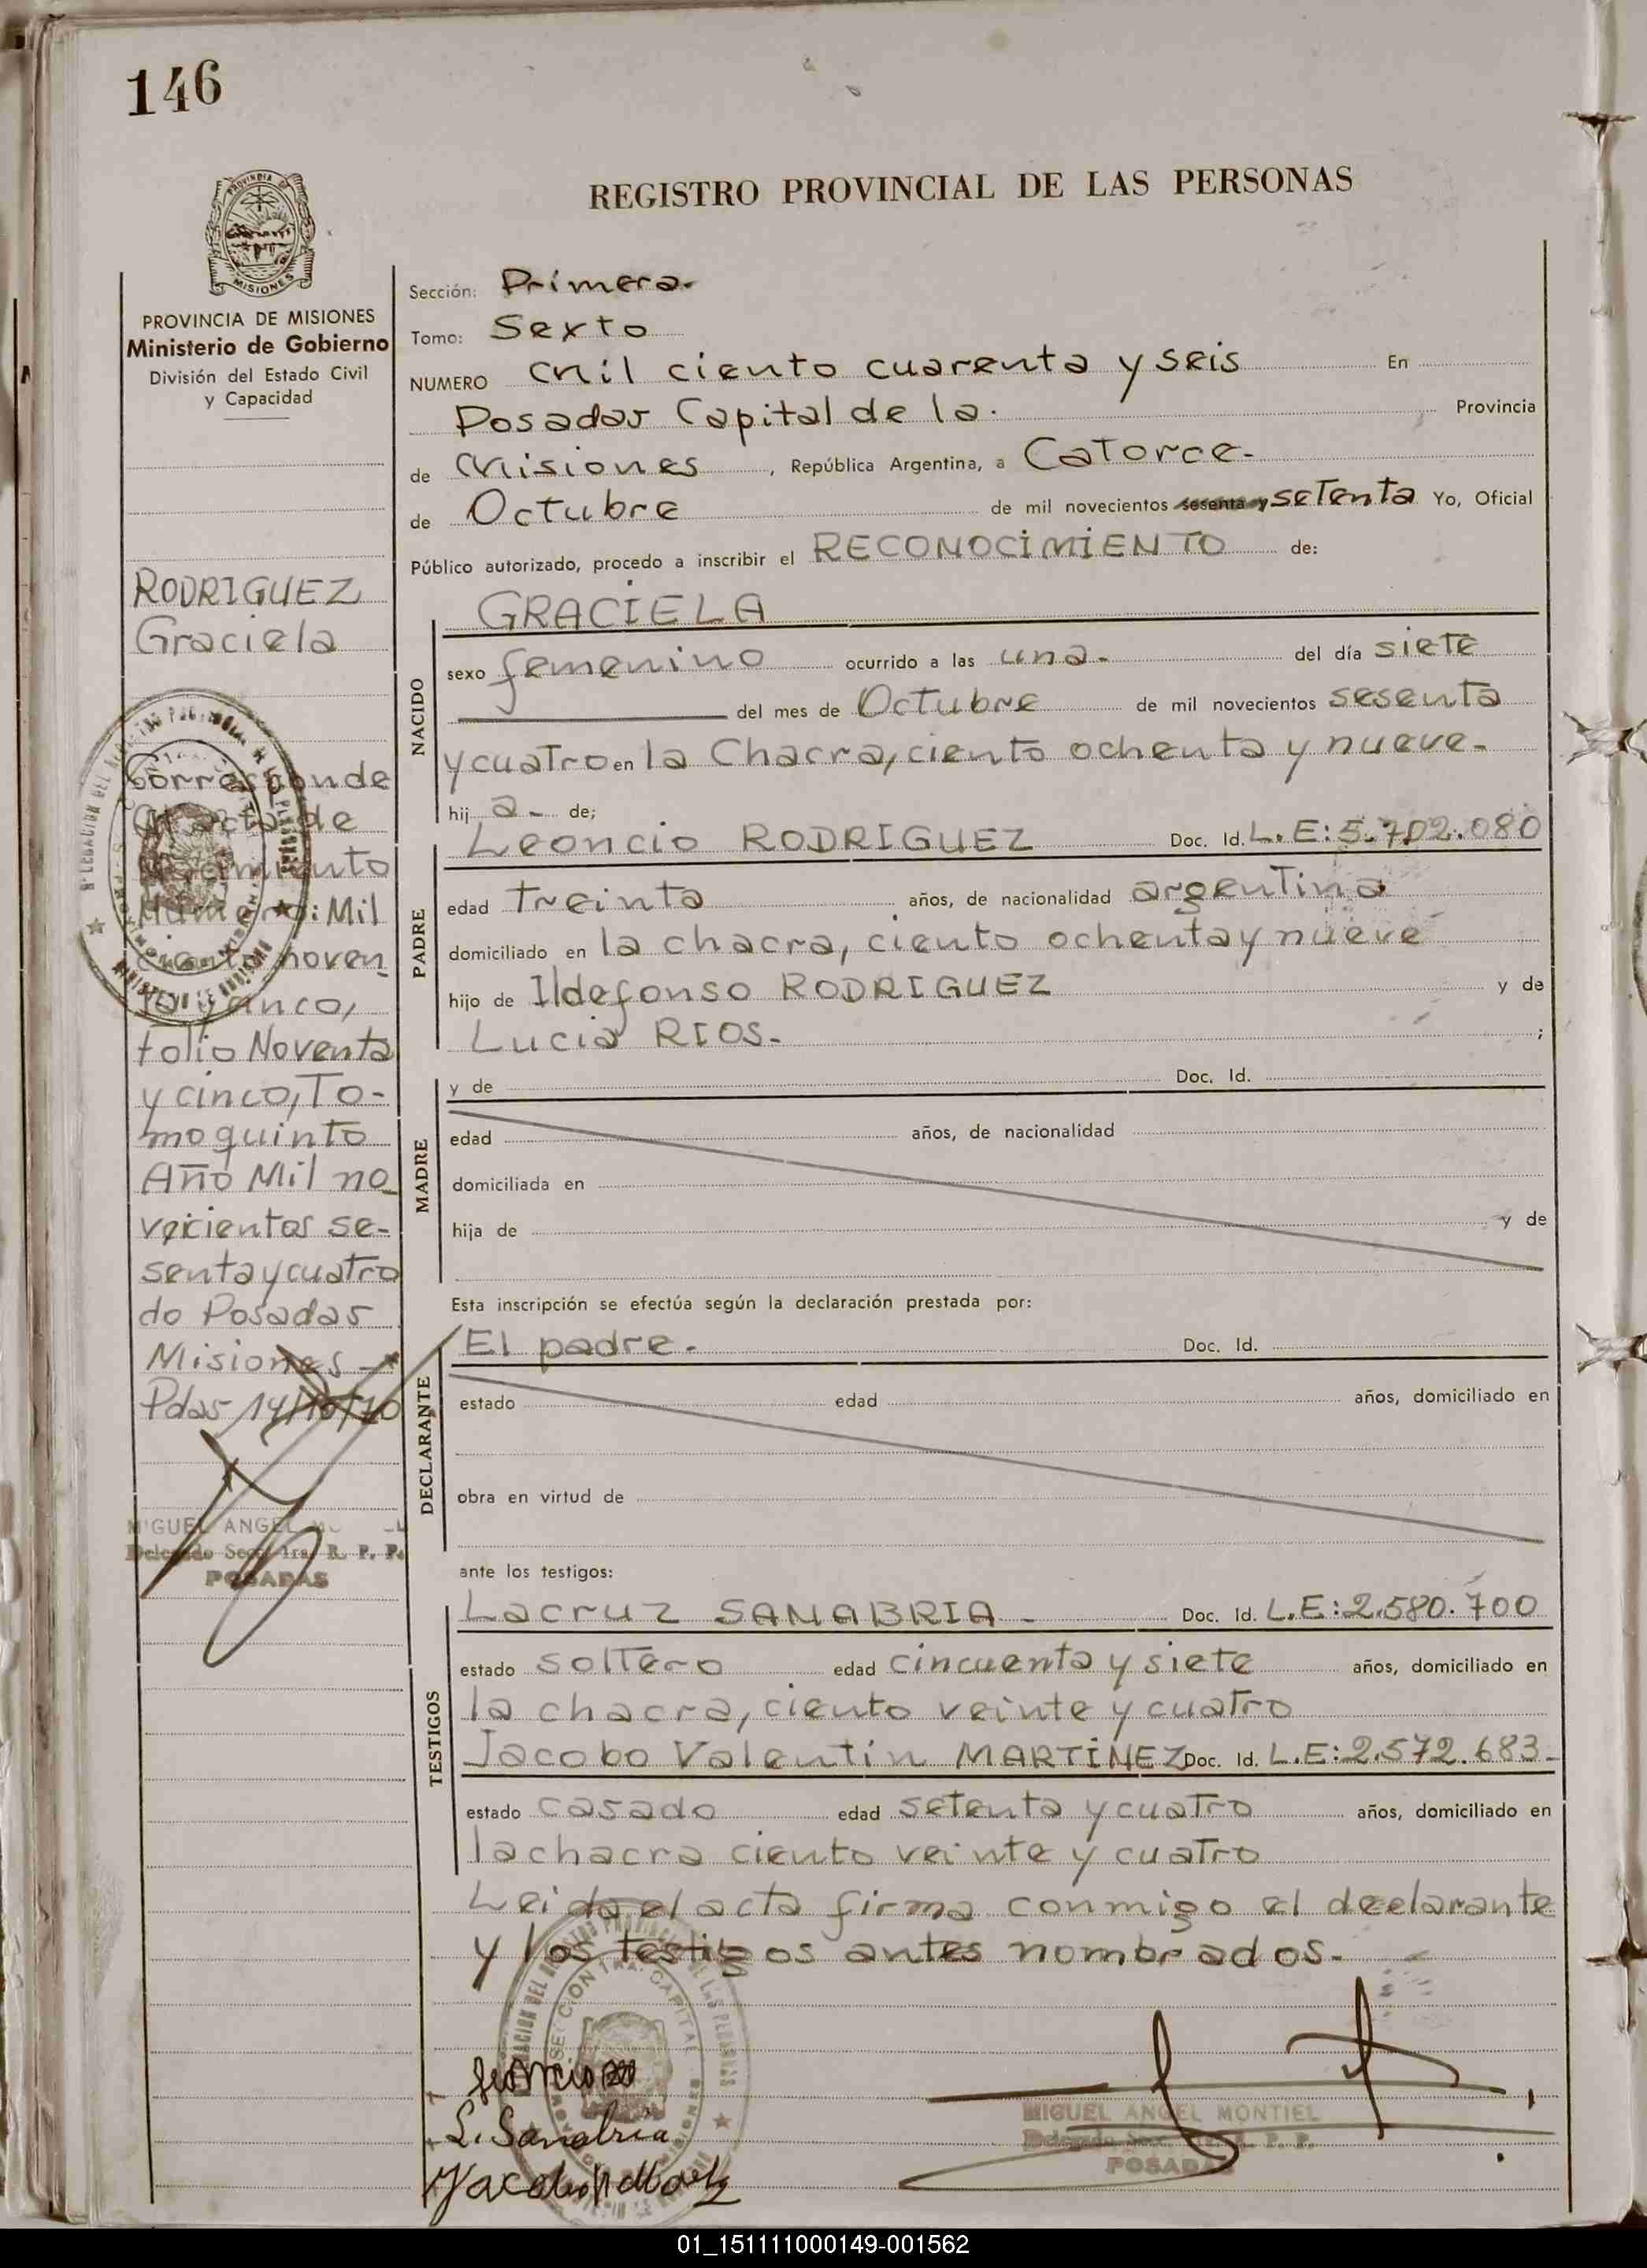 146
PROVINCIA DE
MISIONES
REGISTRO PROVINCIAL DE LAS PERSONAS
PROVINCIA DE MISIONES
Ministerio de Gobierno
División del Estado Civil
y Capacidad
RODRIGUEZ
Graciela
Corresponde
al acta de
Nacimiento
Número: Mil
ciento noven
ta y cinco,
folio Noventa
y cinco, To-
mo quinto
Año Mil no
vecientos se-
senta y cuatro
do Posadas
Misiones
Pdas 14/10/70
MIGUEL ANGEL
Delegado Secc. 1ra. R. P. P.
POSADAS
Sección: Primera.
Tomo: Sexto
NUMERO mil ciento cuarenta y seis En
Posadas Capital de la. Provincia
de Misiones, República Argentina, a Catorce.
de Octubre de mil novecientos sesenta y setenta Yo, Oficial
Público autorizado, procedo a inscribir el RECONOCIMIENTO de:
NACIDO
GRACIELA
sexo femenino ocurrido a las una. del día siete
del mes de Octubre de mil novecientos sesenta
y cuatro en la Chacra, ciento ochenta y nueve.
hij a. de;
PADRE
Leoncio RODRIGUEZ Doc. Id. L.E: 5.702.080
edad treinta años, de nacionalidad argentina
domiciliado en la chacra, ciento ochenta y nueve
hijo de Ildefonso RODRIGUEZ y de
Lucia RIOS. ;
MADRE
y de Doc. Id.
edad años, de nacionalidad
domiciliada en
hija de y de
Esta inscripción se efectúa según la declaración prestada por:
DECLARANTE
El padre. Doc. Id.
estado edad años, domiciliado en
obra en virtud de
ante los testigos:
TESTIGOS
Lacruz SANABRIA Doc. Id. L.E: 2.580.700
estado soltero edad cincuenta y siete años, domiciliado en
la chacra, ciento veinte y cuatro
Jacobo Valentín MARTÍNEZ Doc. Id. L.E: 2.572.683
estado casado edad setenta y cuatro años, domiciliado en
la chacra ciento veinte y cuatro
Leida el acta firma conmigo el declarante
y los testigos antes nombrados.
L. Sanabria
MIGUEL ANGEL MONTIEL
Delegado Secc. 1ra. R. P. P.
POSADAS
01_151111000149-001562